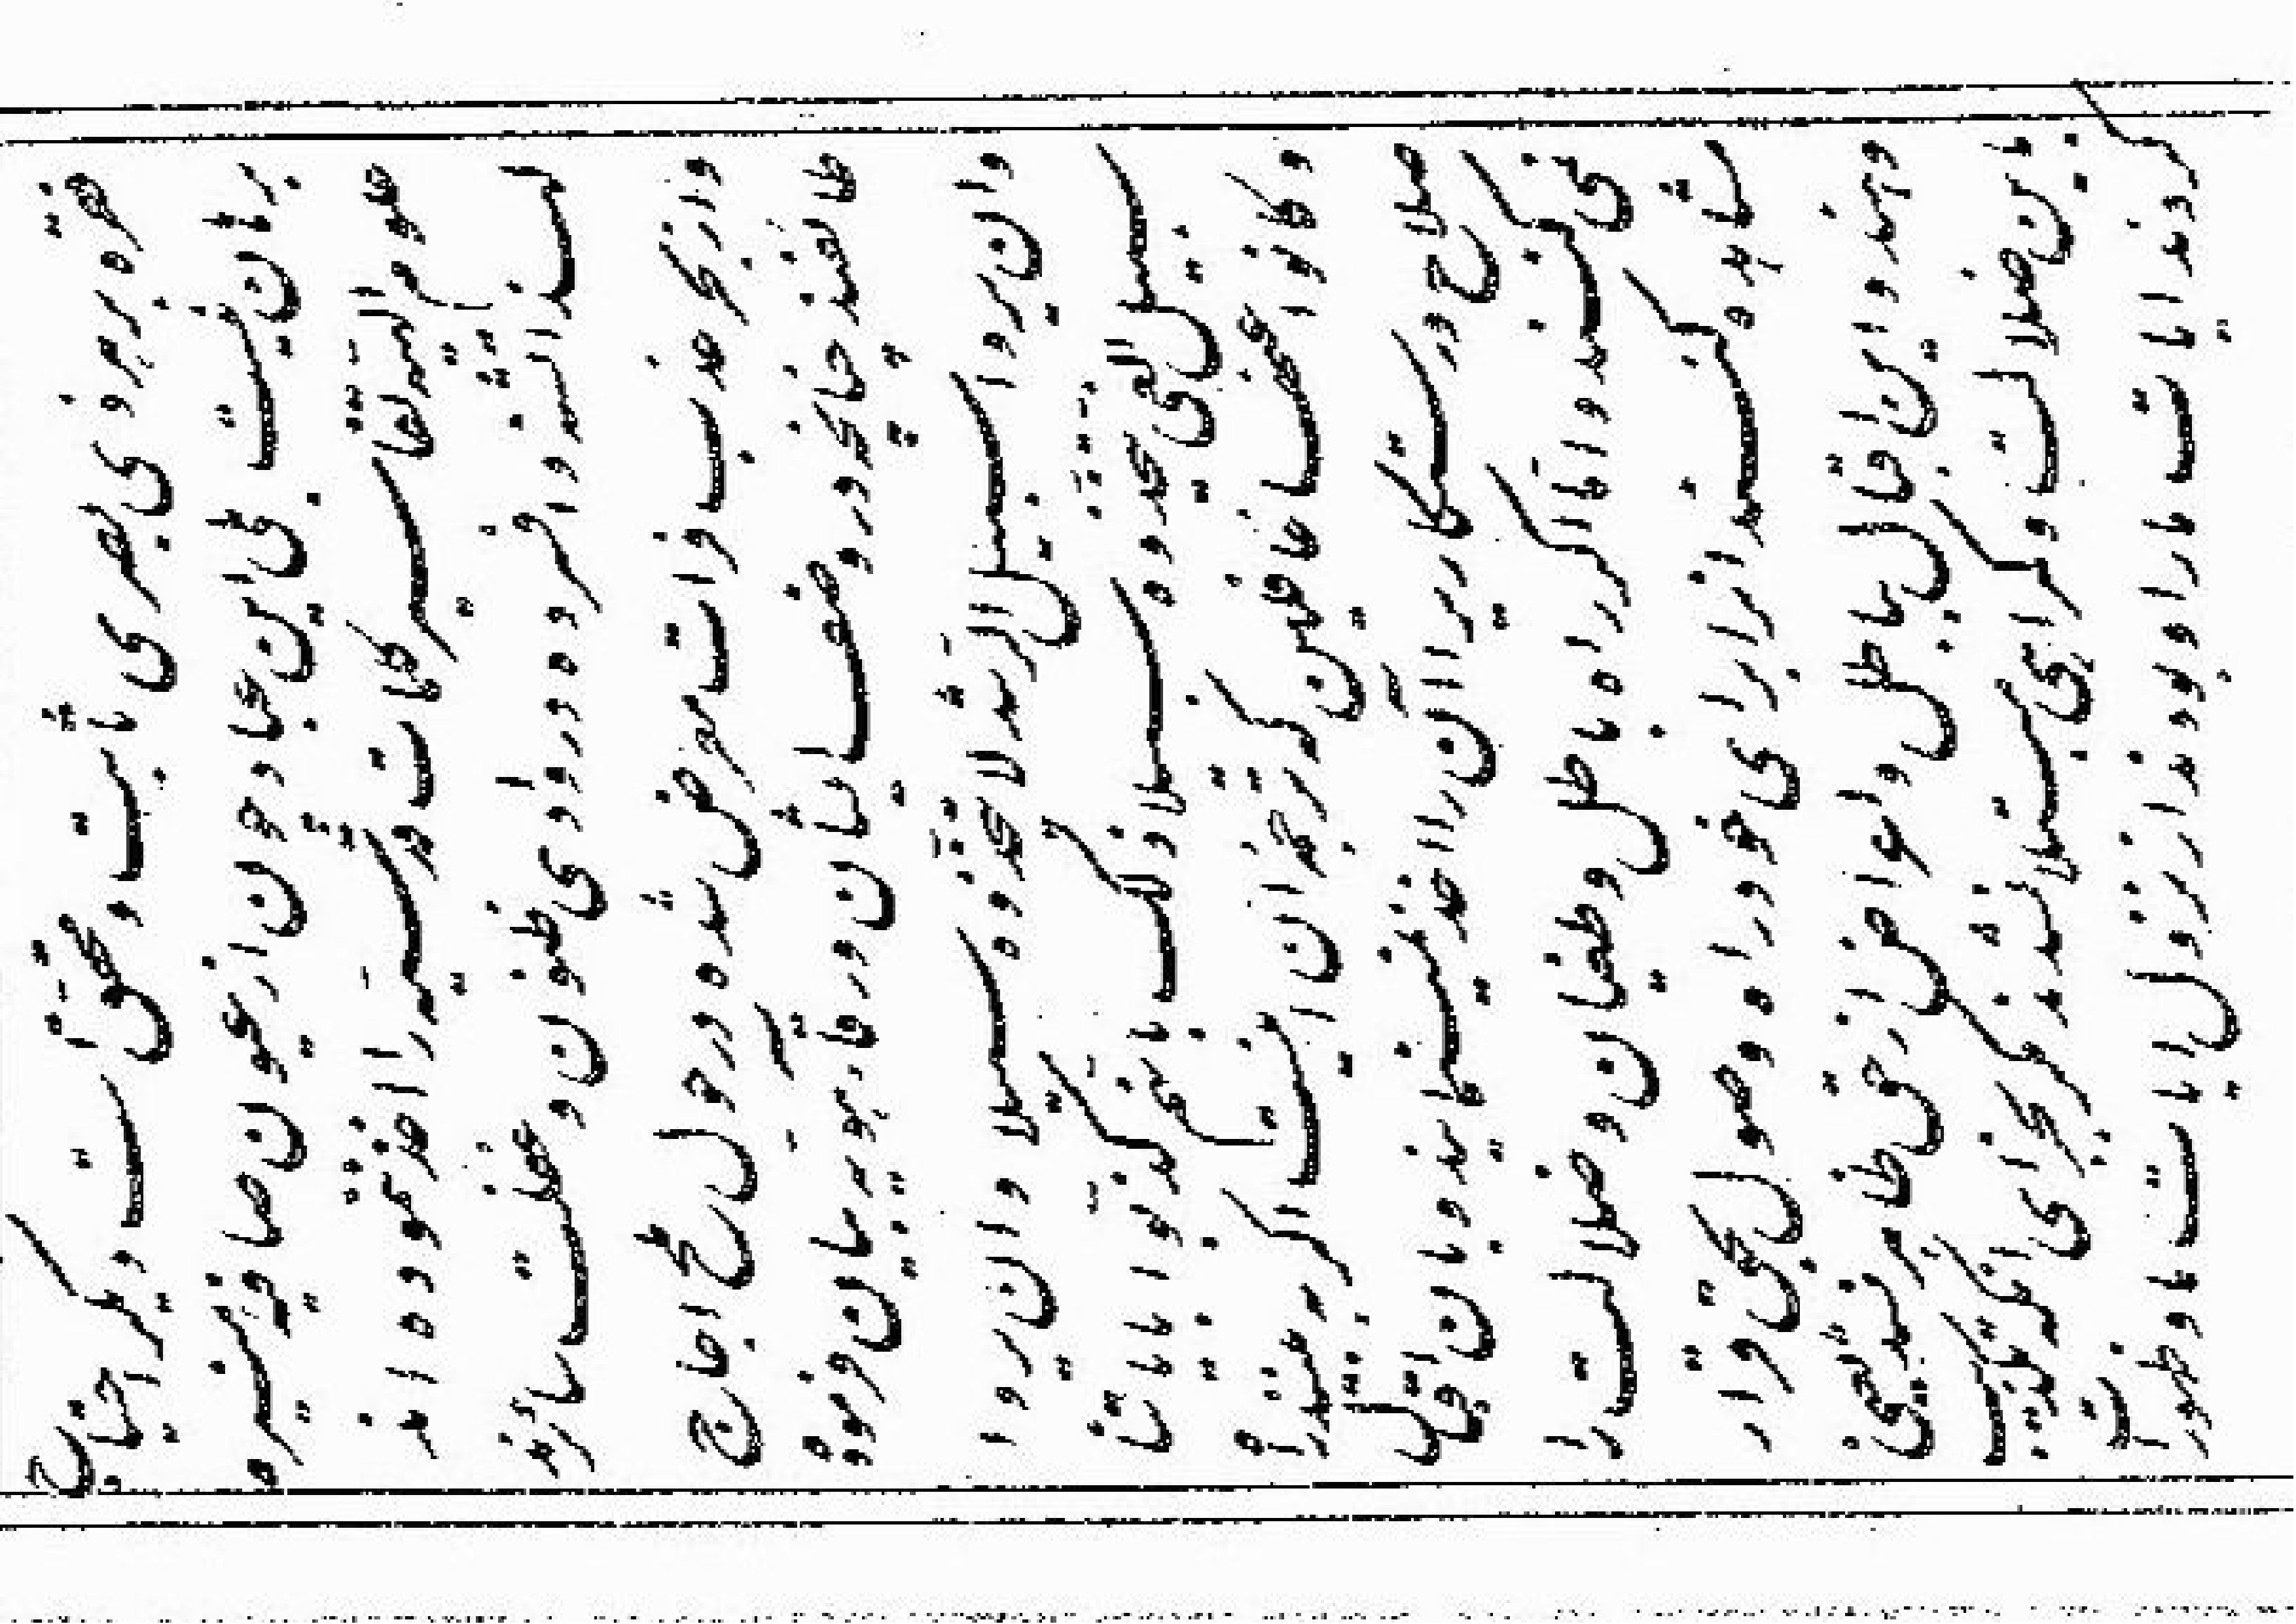 بر هر ذی بصری ثابت و محقق است دیگر احتیاج
برهان نیست ولی این عباد چون از عیون صافیه منیره
علوم الهیه را اخذ ننموده اند
لهذا افسرده در وادی ظنون و غفلت سائرند
و از بحر عذب فرات معرض شده در حول ملح اجاج
طائفند چنانچه در وصف ایشان ورقاء هویه بیان فرموده
وان یروا سبیل الرّشد لا یتّخذوه سبیلا وان یروا
سبیل الغی یتّخذوه سبیلا ذلک بانّهم کذّبوا بایاتنا
وکانوا عنها غافلین که ترجمه آن اینست اگر به بینند راه
صلاح و رستگاریرا آن را اخذ نمینمایند و بآن اقبال
نمی کنند و امّا اگر راه باطل و طغیان و ضلالت را
کنند انرا برای خود راه وصول بحق قرار
دهند و این اقبال بباطل و اعراض از حق ظاهر نشد یعنی
باین ضلالت و گمراهی مبتلا نشدند مگر بجزای انکه تکذیب
کردند ایات ما را و بودند از نزول ایات ما و ظهور